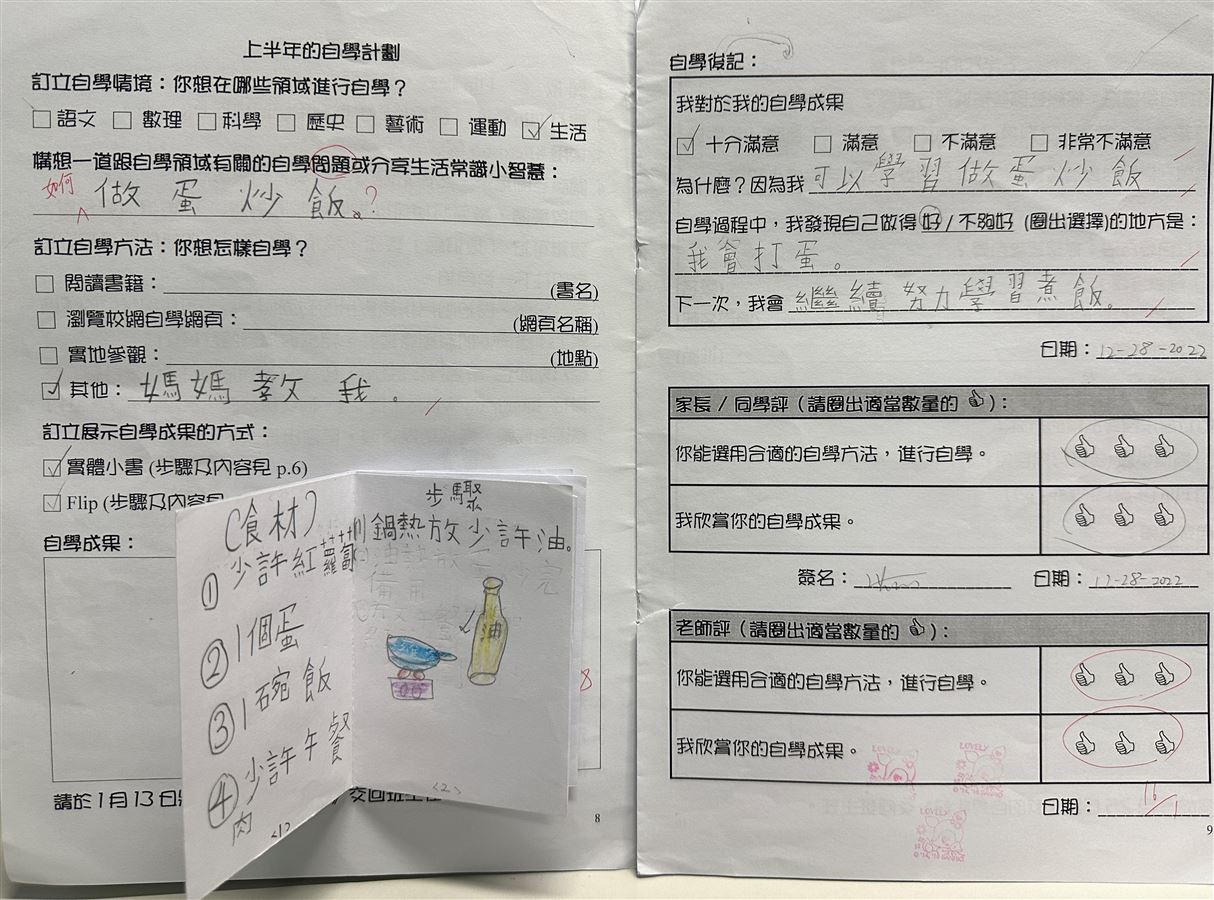 上半年的自學計劃
訂立自學情境：你想在哪些領域進行自學？
□ 語文 □ 數理 □ 科學 □ 歷史 □ 藝術 □ 運動 ☑ 生活
構想一道跟自學領域有關的自學問題或分享生活常識小智慧：
如何做蛋炒飯。？
訂立自學方法：你想怎樣自學？
□ 閱讀書籍：(書名)
□ 瀏覽校網自學網頁：(網頁名稱)
□ 實地參觀：(地點)
☑ 其他：媽媽教我。
訂立展示自學成果的方式：
☑ 實體小書 (步驟及內容見 p.6)
☑ Flip (步驟及內容見
自學成果：
請於1月13日
交回班主任
8
(食材)
① 少許紅蘿蔔
② 1個蛋
③ 1碗飯
④ 少許午餐
肉
<1>
步驟
鍋熱放少許油。
油
<2>
自學後記：
我對於我的自學成果
☑ 十分滿意 □ 滿意 □ 不滿意 □ 非常不滿意
為什麼？因為我可以學習做蛋炒飯
自學過程中，我發現自己做得好 / 不夠好 (圈出選擇)的地方是：
我會打蛋。
下一次，我會繼續努力學習煮飯。
日期：12-28-2022
家長 / 同學評（請圈出適當數量的 👍）：
你能選用合適的自學方法，進行自學。 👍 👍 👍
我欣賞你的自學成果。 👍 👍 👍
簽名： 日期：12-28-2022
老師評（請圈出適當數量的 👍）：
你能選用合適的自學方法，進行自學。 👍 👍 👍
我欣賞你的自學成果。 👍 👍 👍
LOVELY
LOVELY
LOVELY
日期：16/1
9